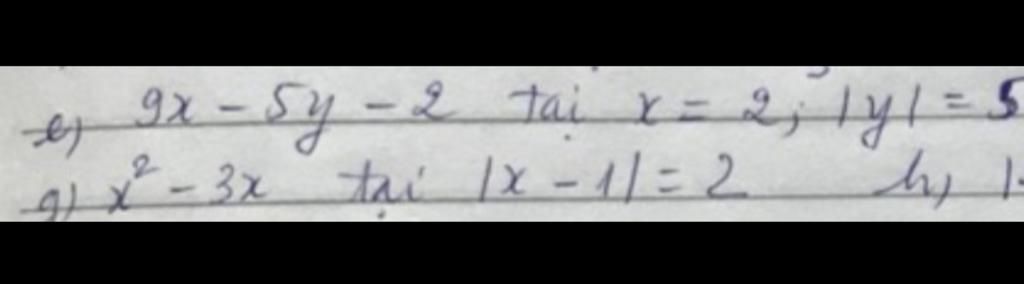 e) 9x - 5y - 2 tại x = 2; |y| = 5
g) x² - 3x tại |x - 1| = 2 h,